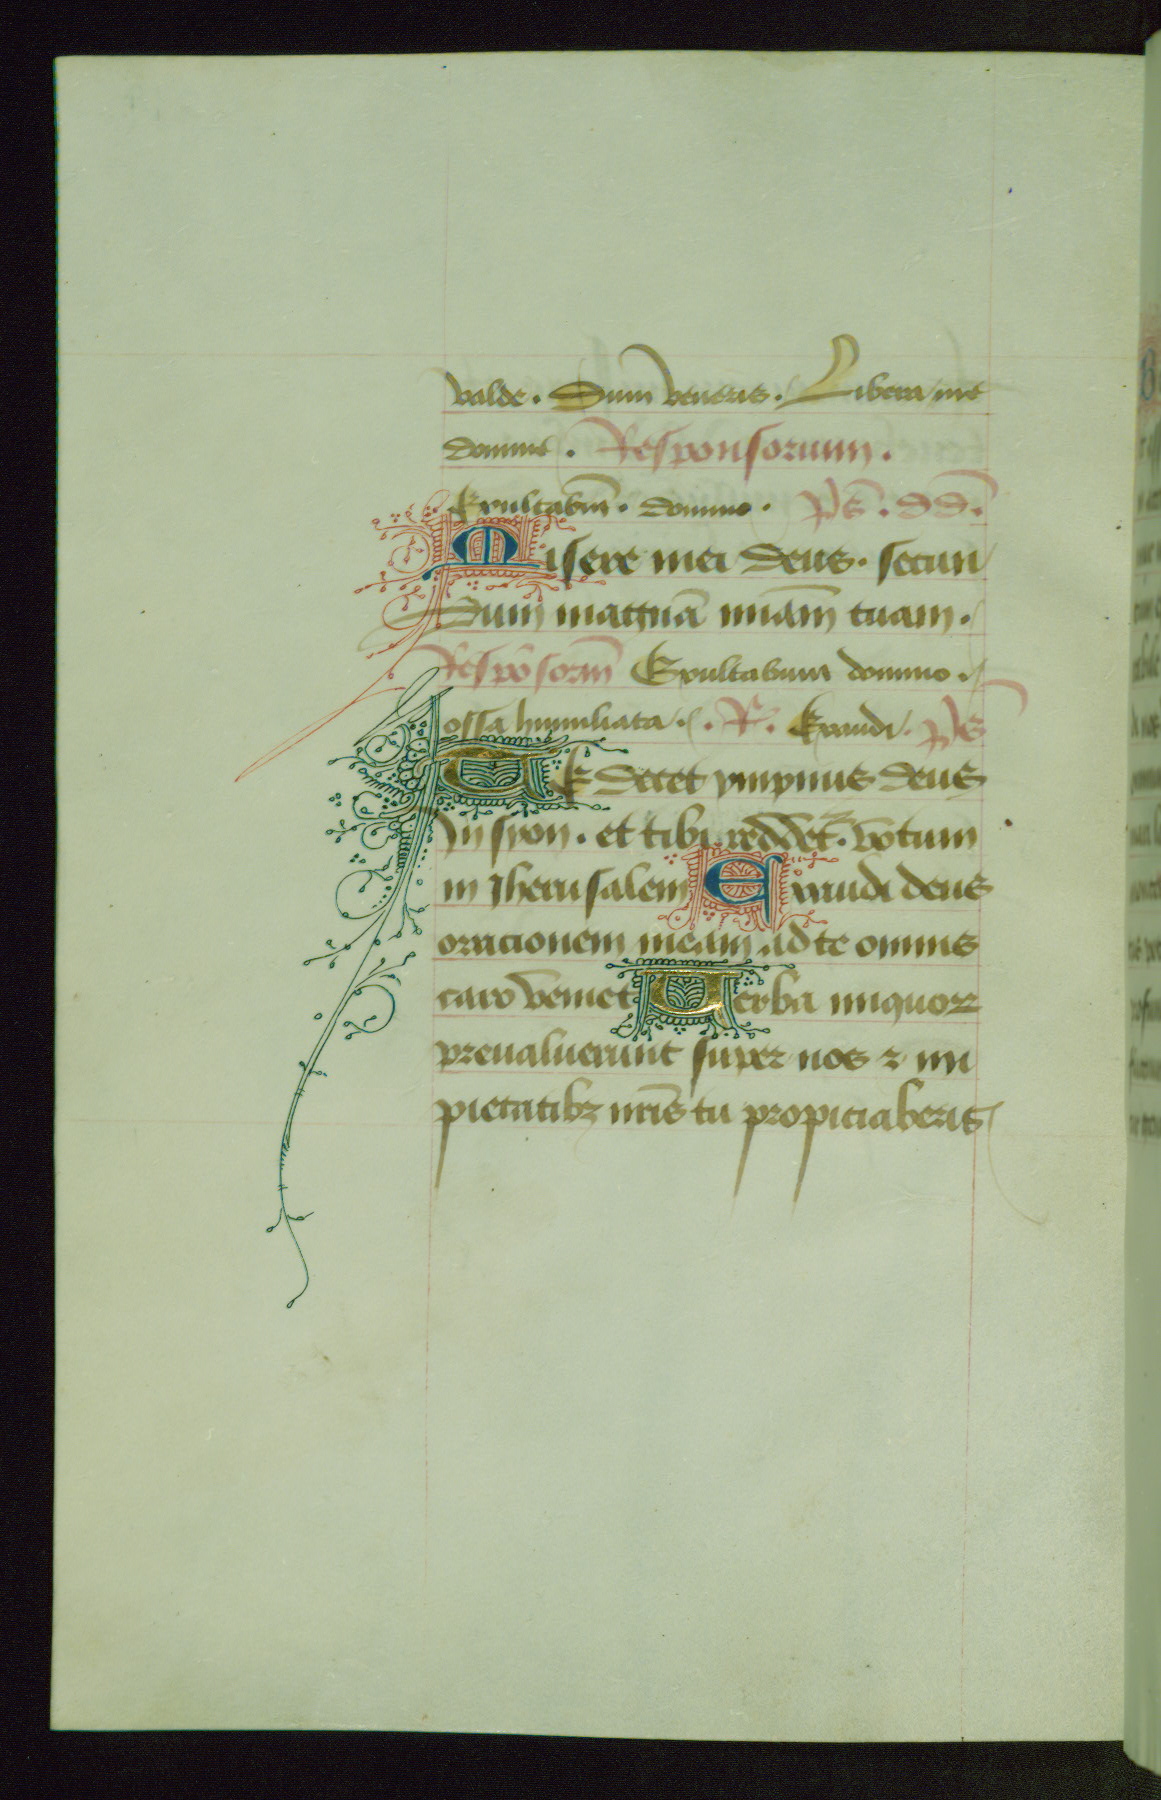 valde . Dum veneris . Libera me
domine . Responsorium .
Exultabūt . domino . ps̄ . dd̄ .
Misere mei deus . secun
dum magnā miām tuam .
Respōsoriū Exultabunt domino .
ossa humiliata . R̷ . Exaudi . ps̄
TE decet ympnus deus
In syon . et tibi reddet᷑ votum
in Iherusalem Exaudi deus
oracionem meam ad te omnis
caro veniet Verba iniquoꝝ
preualuerunt super nos ⁊ im
pietatibꝫ nr̄is tu propiciaberis